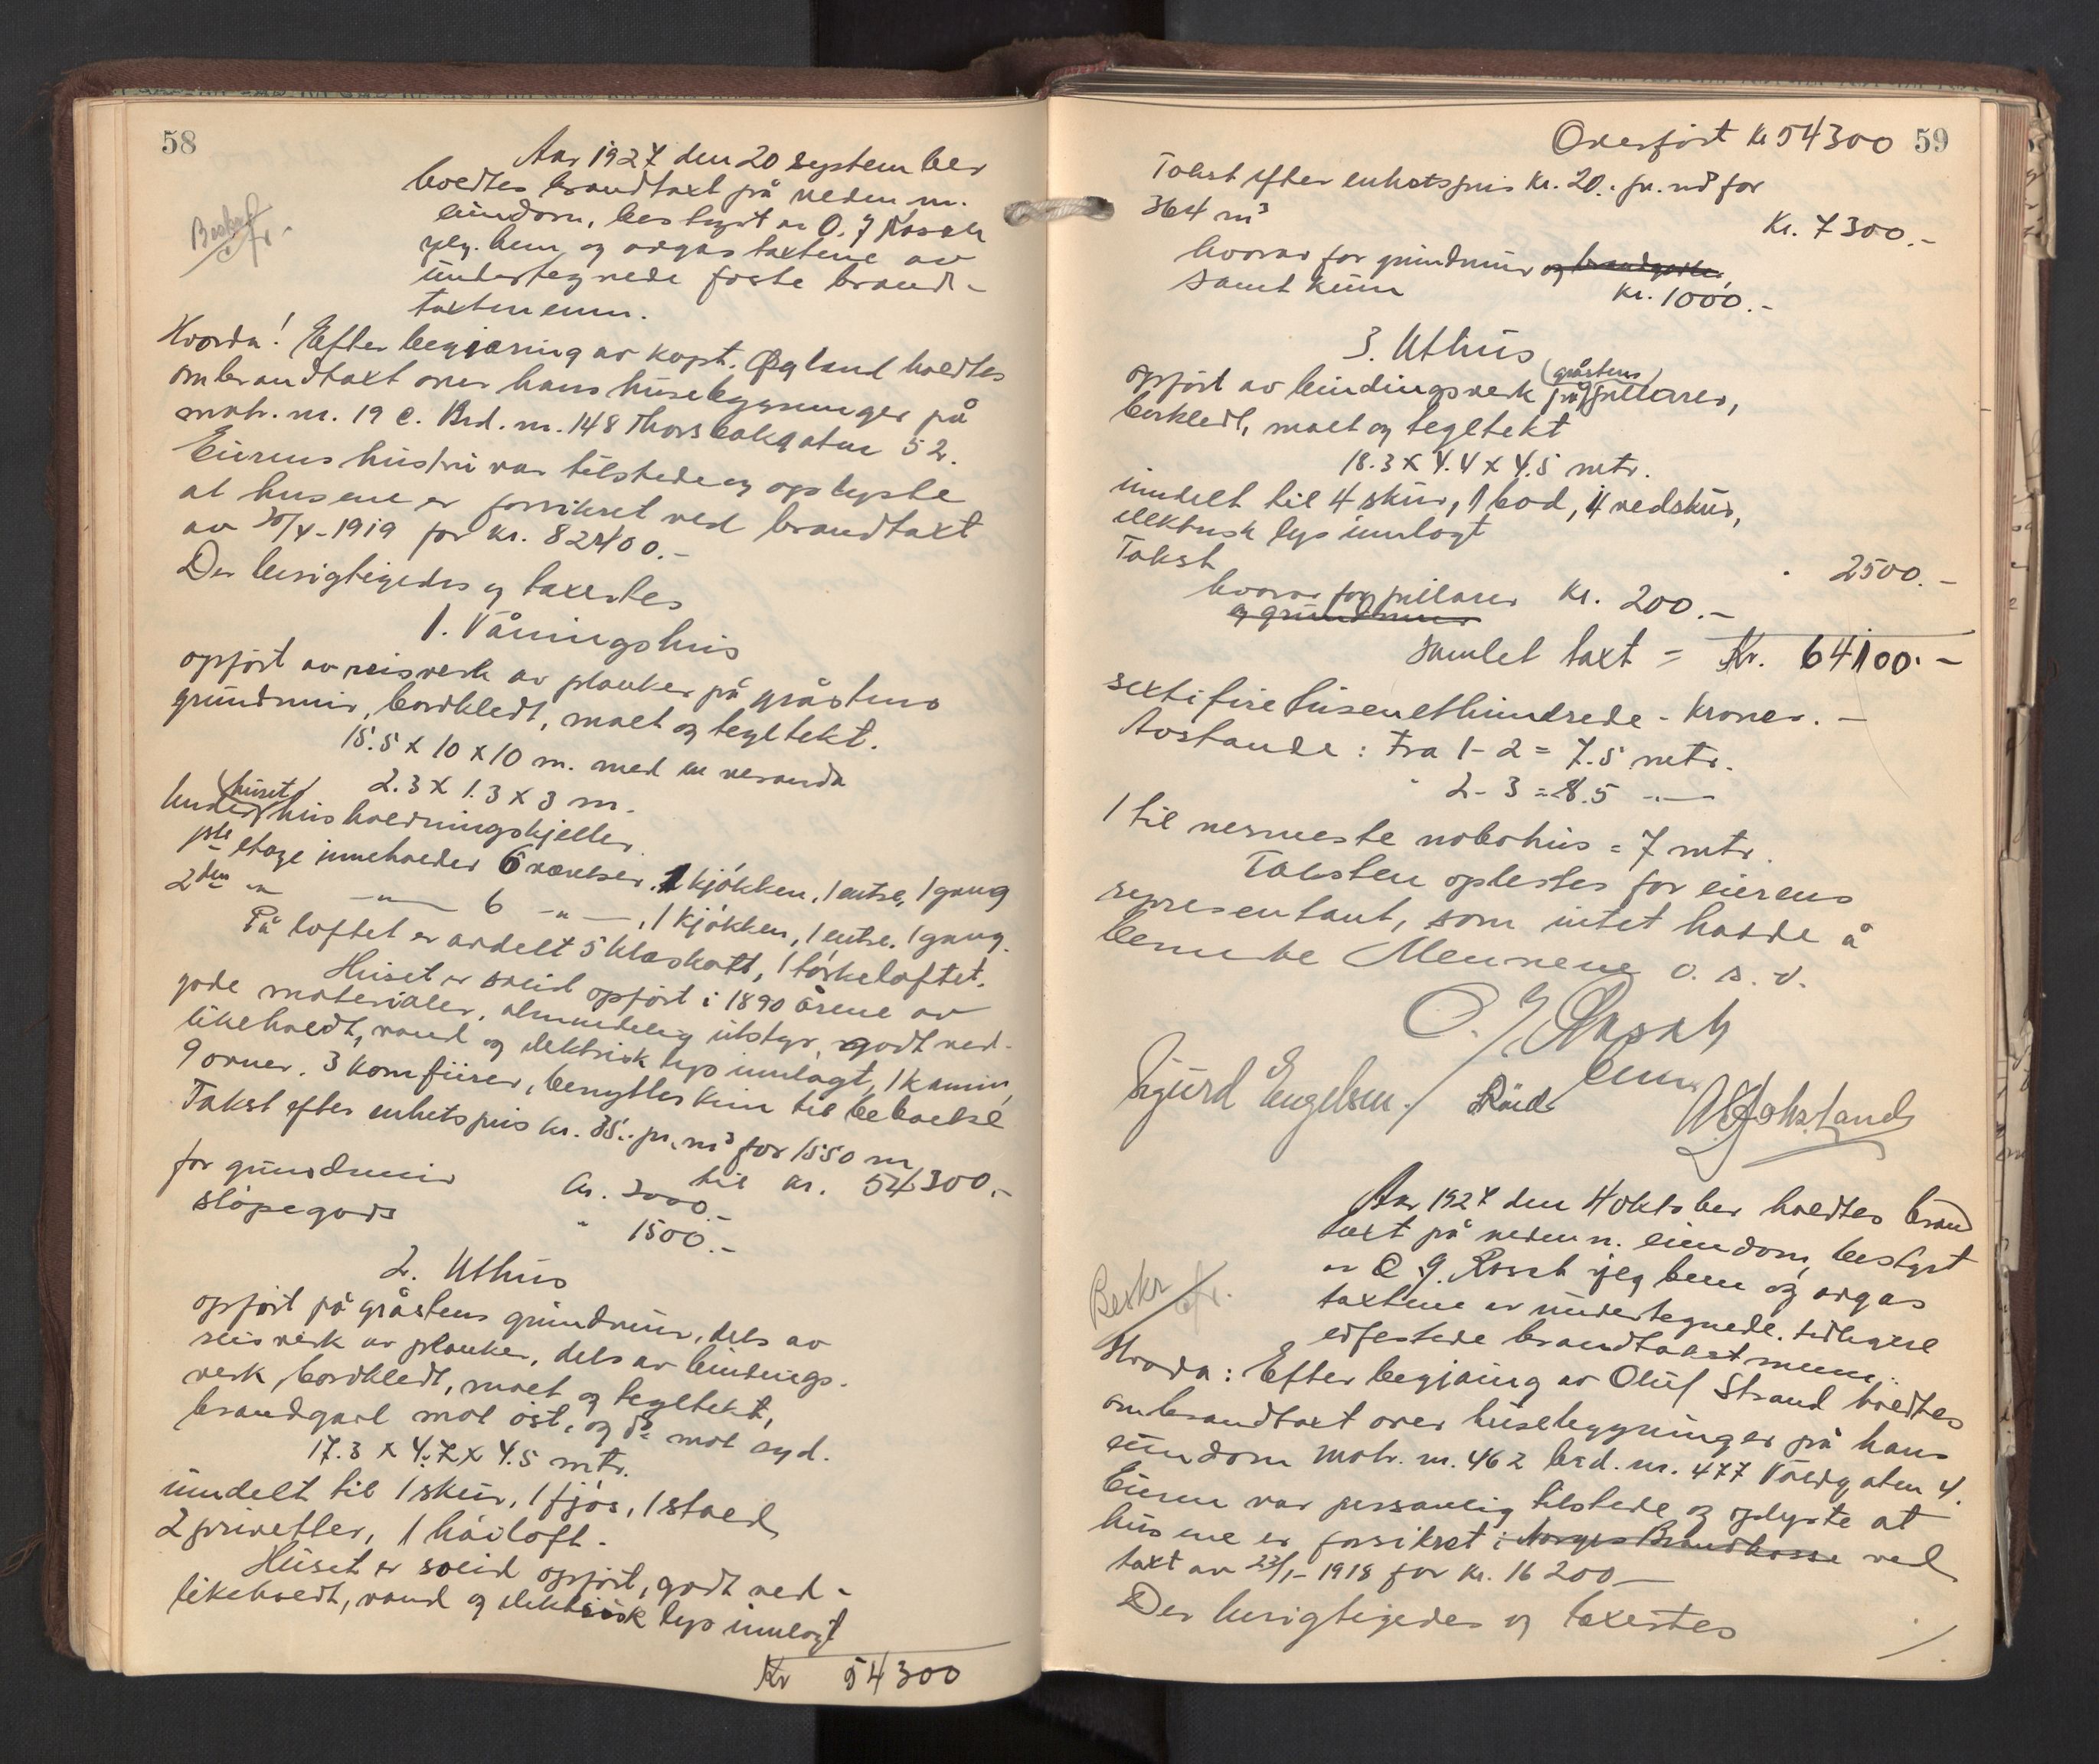 58
Aar 1927 den 20 september
hoedtes brandtaxt på neden n.
eiendom, bestyrt av O. J Rasch
jeg. bem og avgas taxtene av
undertegnede faste brand-
taxtmenn.
Beskrf
fr.
Hvorda! Efter begjæring av kapt. Øgland hoedtes
ombrandtaxt over hans husebygninger på
matr. nr. 19 c. Brd. nr. 148 Thorsbakgaten 52.
Eierens hustru var tilstede og oplyste
at husene er forsikret ved brandtaxt
av 20/V-1919 for kr. 82400.-
Der besigtigedes og taxertes
1. Våningshus
opført av reisverk av planker på gråstens
grundmur, bordkledt, malt og tegltekt.
15.5 x 10 x 10 m. med en veranda
2.3 x 1.3 x 3 m.
Under huset hushoedningskjeller.
1ste etage inneholder 6 værelser. 1 kjøkken, 1 entre, 1 gang
2den -"- -"- 6 -"-, 1 kjøkken, 1 entre. 1 gang.
På loftet er avdelt 5 klæskott, 1 tørkeloftet.
Huset er soeid opført i 1890 årene av
gode materialer, almindelig utstyr, godt ved-
likehoedt, vand og elektrisk lys innlagt, 1 kamin,
9 ovner. 3 komfurer, benyttes kun til beboelse
Takst efter enhetspris kr. 35.- pr. m3 for 1550 m
til kr. 54300.-
for grundmur kr. 2000.-
støpegods " 1500.-
2. Uthus
opført på gråstens grundmur, dels av
reisverk av planker, dels av bindings-
verk, bordkledt, malt og tegltekt,
brandgavl mot øst, og do mot syd.
17.3 x 4.7 x 4.5 mtr.
inndelt til 1 skur, 1 fjøs, 1 staed
2 privetter, 1 høiloft.
Huset er soeid opført, godt ved-
likehoedt, vand og elektrisk lys innlagt
Kr 54300
Overført kr 54300 59
Takst efter enhetspris kr. 20.- pr. m3 for
364 m3
Kr. 7300.-
hvorav for grundmur og brandgavler,
samt kum kr. 1000.-
3. Uthus
opført av bindingsverk på (gråstens) pillarer,
borkledt, malt og tegltekt
18.3 x 4.4 x 4.5 mtr.
inndelt til 4 skur, 1 bod, 4 vedskur,
elektrisk lys innlagt
Takst " 2500.-
hvorav for pillarer kr. 200.-
og grundmur
Samlet taxt = Kr. 64100.-
sextifiretusenethundrede - kroner.-
Avstande: Fra 1-2 = 7.5 mtr.
" 2-3 = 8.5 -"-
1 til nærmeste nabohus = 7 mtr.
Taksten oplestes for eierens
representant, som intet hadde å
bemerke Mennene o. s. v.
O. J. Rasch
bem.
Sigurd Engelsen. Röed
Aar 1927 den 4 oktober hoedtes brand
taxt på neden n. eiendom, bestyrt
av O. J. Rasch jeg bem og avgas
taxtene av undertegnede. tidligere
edfestede brandtakstmenn.
Beskr
fr.
Hvorda: Efter begjæing av Oluf Strand hoedtes
ombrandtaxt over husebygninger på hans
eiendom Matr. nr. 462 brd. nr. 477 Voedgaten 4.
Eieren var personlig tilstede og oplyste at
husene er forsikret i Norges Brandkasse ved
taxt av 23/1-1918 for kr. 16200.-
Der besigtigedes og taxertes